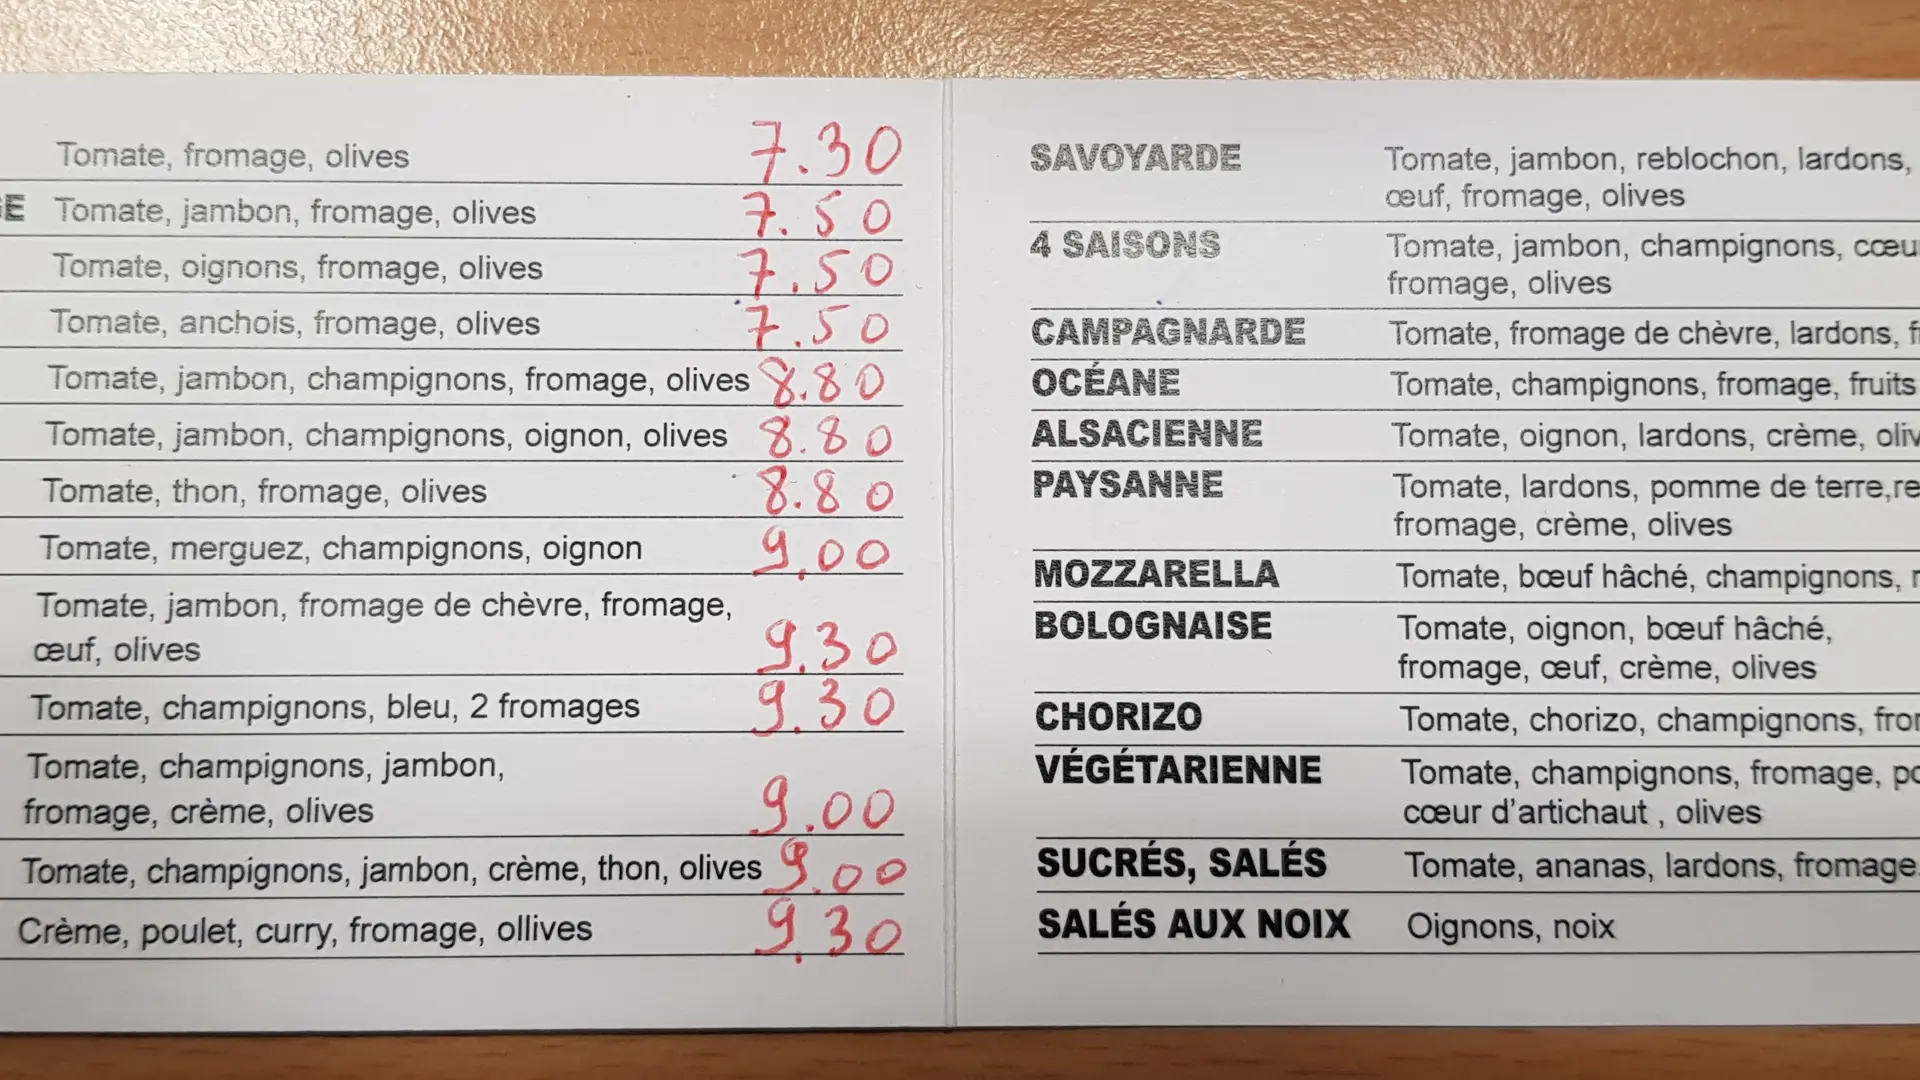 Tomate, fromage, olives 7.30
Tomate, jambon, fromage, olives 7.50
Tomate, oignons, fromage, olives 7.50
Tomate, anchois, fromage, olives 7.50
Tomate, jambon, champignons, fromage, olives 8.80
Tomate, jambon, champignons, oignon, olives 8.80
Tomate, thon, fromage, olives 8.80
Tomate, merguez, champignons, oignon 9.00
Tomate, jambon, fromage de chèvre, fromage,
œuf, olives 9.30
Tomate, champignons, bleu, 2 fromages 9.30
Tomate, champignons, jambon,
fromage, crème, olives 9.00
Tomate, champignons, jambon, crème, thon, olives 9.00
Crème, poulet, curry, fromage, ollives 9.30
SAVOYARDE Tomate, jambon, reblochon, lardons,
œuf, fromage, olives
4 SAISONS Tomate, jambon, champignons,
fromage, olives
CAMPAGNARDE Tomate, fromage de chèvre, lardons,
OCÉANE Tomate, champignons, fromage, fruits
ALSACIENNE Tomate, oignon, lardons, crème,
PAYSANNE Tomate, lardons, pomme de terre,
fromage, crème, olives
MOZZARELLA Tomate, bœuf hâché, champignons,
BOLOGNAISE Tomate, oignon, bœuf hâché,
fromage, œuf, crème, olives
CHORIZO Tomate, chorizo, champignons,
VÉGÉTARIENNE Tomate, champignons, fromage,
cœur d'artichaut , olives
SUCRÉS, SALÉS Tomate, ananas, lardons, fromage
SALÉS AUX NOIX Oignons, noix